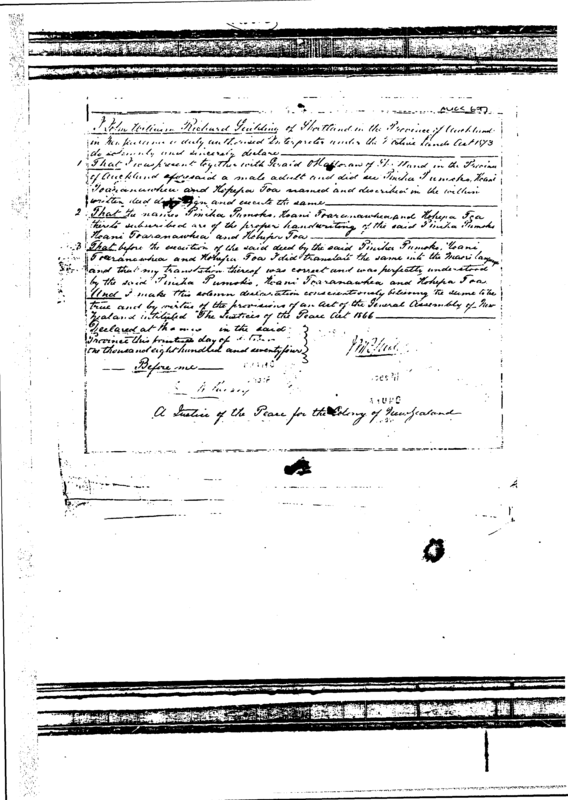 I John William Richard Guilding of Shortland in the Province of Auckland
in New Zealand a duly authorised Interpreter under the Native Lands Act 1873
do solemnly and sincerely declare
1 That I was present together with Gerald O'Halloran of Shortland in the Province
of Auckland aforesaid a male adult and did see Piniha Pumoko, Hoani
Toaranawhea and Hohepa Toa named and described in the within
written deed sign and execute the same
2 That the names Piniha Pumoko, Hoani Toaranawhea and Hohepa Toa
thereto subscribed are of the proper handwriting of the said Piniha Pumoko
Hoani Toaranawhea and Hohepa Toa
3 That before the execution of the said deed by the said Piniha Pumoko, Hoani
Toaranawhea and Hohepa Toa I did translate the same into the Maori language
and that my translation thereof was correct and was perfectly understood
by the said Piniha Pumoko, Hoani Toaranawhea and Hohepa Toa
And I make this solemn declaration conscientiously believing the same to be
true and by virtue of the provisions of an Act of the General Assembly of New
Zealand intituled The Justices of the Peace Act 1866
Declared at Thames in the said
Province this day of
one thousand eight hundred and seventy four
Before me
A Justice of the Peace for the Colony of New Zealand